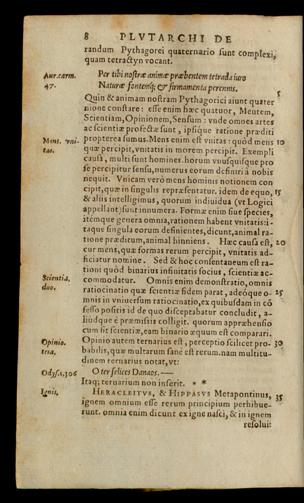 8 PLVTARCHI DE
randum Pythagorei quaternario sunt complexi,
quam tetractyn vocant.
Aur.carm. Per tibi nostræ animæ præbentem tetrada iuro
47. Naturæ fontemq; & firmamenta perennis.
Quin & animam nostram Pythagorici aiunt quater
nione constare: esse enim hæc quatuor, Mentem,
Scientiam, Opinionem, Sensum: vnde omnes artes
ac scientiæ profectæ sunt, ipsique ratione præditi
Mens. vni- propterea sumus. Mens enim est vnitas: quòd mens 10
tas. quæ percipit, vnitatis in morem percipit. Exempli
causa, multi sunt homines. horum vnusquisque pro
se percipitur sensu, numerus eorum definiri à nobis
nequit. Vnicam verò mens hominis notionem con
cipit, quæ in singulis repræsentatur. idem de equo, 15
& aliis intelligimus, quorum indiuidua (vt Logici
appellant) sunt innumera. Formæ enim suæ species,
itémque genera omnia, rationem habent vnitatis: i-
taque singula eorum definientes, dicunt, animal ra-
tione præditum, animal hinniens. Hæc causa est, 20
cur mens, quæ formas rerum percipit, vnitatis ad-
ficiatur nomine. Sed & hoc consentaneum est ra-
tioni quòd binarius infinitatis socius, scientiæ ac-
Scientia. commodatur. Omnis enim demonstratio, omnis
duo. ratiocinatio quæ scientiæ fidem parat, adeóque o- 25
mnis in vniuersum ratiocinatio, ex quibusdam in cō
fesso positis id de quo disceptabatur concludit, a-
liúdque è præmissis colligit. quorum appræhensio
cum sit scientiæ, eam binario æquum est comparari.
Opinio. Opinio autem ternarius est, perceptio scilicet pro- 30
tria. babilis, quæ multarum sanè est rerum. nam multitu-
dinem ternarius notat, vt:
Odyss.ε.306 O ter felices Danaos. —
Itaq; ternarium non inserit. * *
Ignis. HERACLEITVS, & HIPPASVS Metapontinus, 35
ignem omnium esse rerum principium perhibue-
runt. omnia enim dicunt ex igne nasci, & in ignem
resolui: